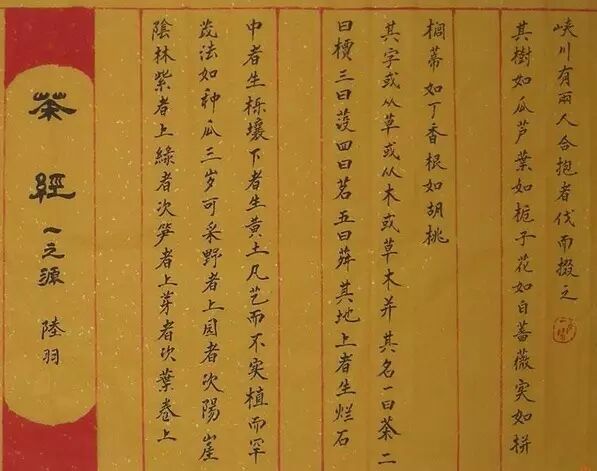 峡川有兩人合抱者伐而掇之
其樹如瓜芦葉如栀子花如白薔薇实如拼
榈蒂如丁香根如胡桃
其字或从草或从木或草木并其名一曰茶二
曰檟三曰蔎四曰茗五曰荈其地上者生烂石
中者生栎壤下者生黄土凡艺而不实植而罕
茂法如种瓜三岁可采野者上园者次陽崖
陰林紫者上緑者次笋者上芽者次葉卷上
茶經 一之源 陸羽